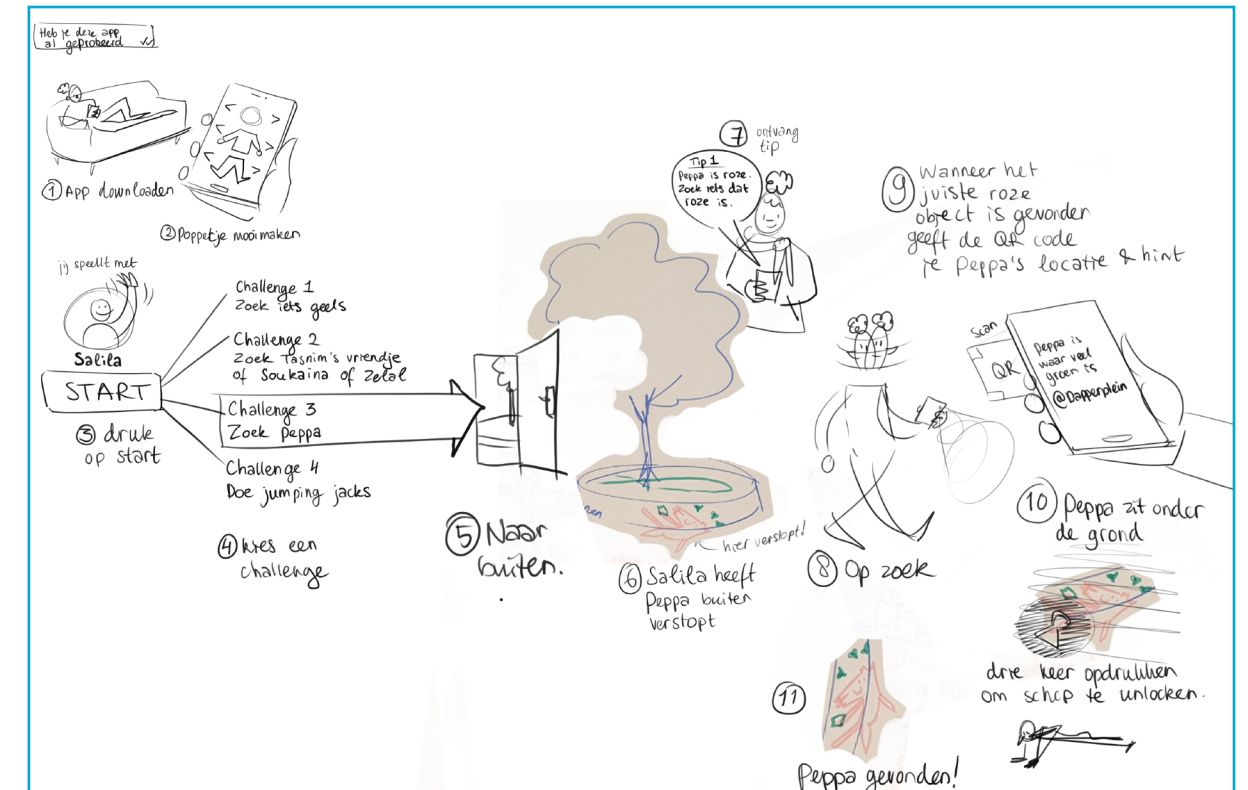 Heb je deze app
al geprobeerd
① App downloaden
② Poppetje mooi maken
jij speelt met
Salila
START
③ druk
op start
Challenge 1
Zoek iets geels
Challenge 2
Zoek Tasnim's vriendje
of Soukaina of Zelal
Challenge 3
Zoek Peppa
Challenge 4
Doe jumping jacks
④ kies een
challenge
⑤ Naar
buiten.
hier verstopt!
⑥ Salila heeft
Peppa buiten
verstopt
⑦ ontvang
tip
Tip 1
Peppa is roze.
Zoek iets dat
roze is.
⑧ Op zoek
⑨ Wanneer het
juiste roze
object is gevonden
geeft de QR code
je Peppa's locatie & hint
scan
QR
Peppa is
waar veel
groen is
@Dapperplein
⑩ Peppa zit onder
de grond
drie keer opdrukken
om schep te unlocken.
⑪
Peppa gevonden!